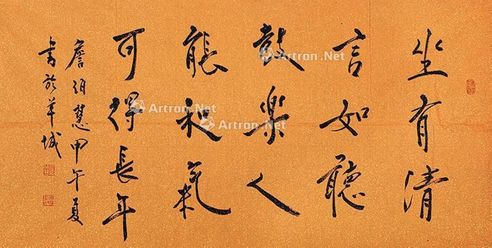 坐有清
言如聽
鼓樂人
能和氣
可得長年
詹伯慧甲午夏
書於羊城
Artron.Net
Artron.Net
Artron.Net